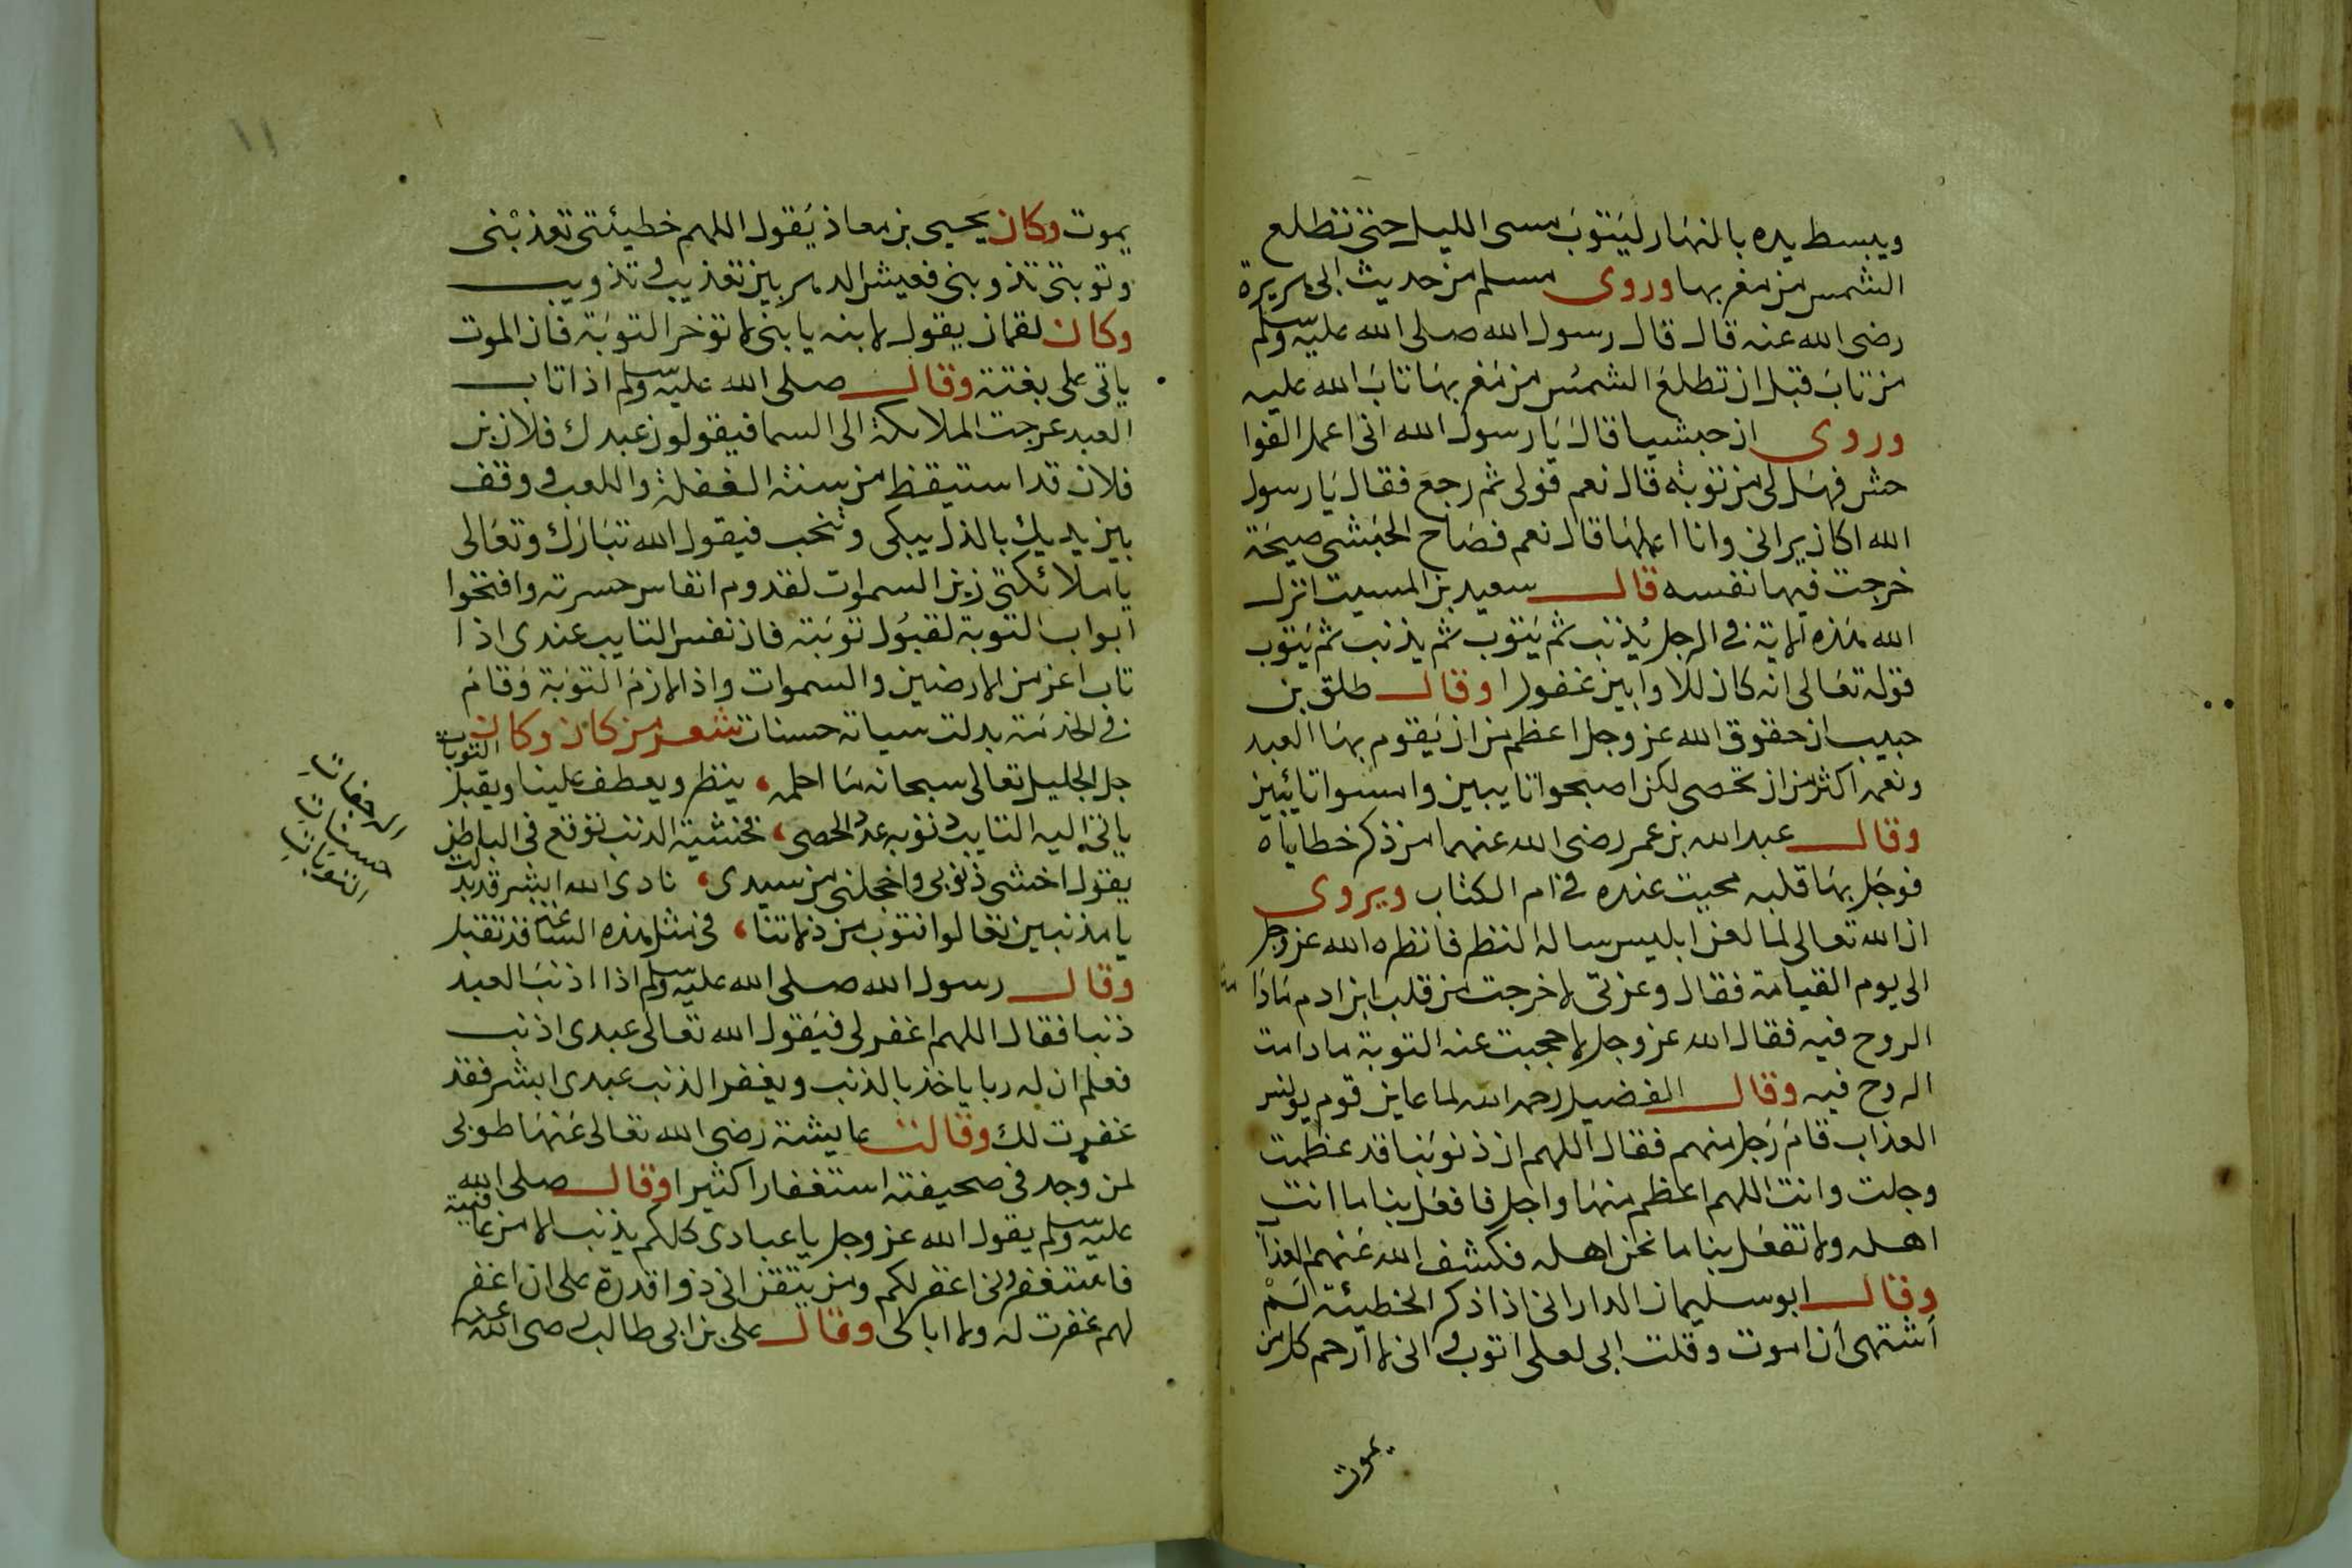 ويبسط يده بالنهار ليتوب مسى الليل حتى تطلع
الشمس من مغربها وروى مسلم من حديث ابى هريرة
رضى الله عنه قال قال رسول الله صلى الله عليه وسلم
من تاب قبل ان تطلع الشمس من مغربها تاب الله عليه
وروى ان حبشيا قال يا رسول الله انى اعمل الفوا
حش فهل لى من توبة قال نعم فولى ثم رجع فقال يا رسول
الله اكان يرانى وانا اعملها قال نعم فصاح الحبشى صيحة
خرجت فيها نفسه قال سعيد بن المسيب انزل
الله هذه الاية فى الرجل يذنب ثم يتوب ثم يذنب ثم يتوب
قوله تعالى انه كان للاوابين غفورا وقال طلق بن
حبيب ان حقوق الله عز وجل اعظم من ان يقوم بها العبد
ونعمه اكثر من ان تحصى لكن اصبحوا تايبين وامسوا تائبين
وقال عبد الله بن عمر رضى الله عنهما من ذكر خطاياه
فوجل بها قلبه محيت عنده فى ام الكتاب ويروى
ان الله تعالى لما لعن ابليس ساله النظر فانظره الله عز وجل
الى يوم القيامة فقال وعزتى لاخرجت من قلب ابن ادم مادا
الروح فيه فقال الله عز وجل لاحجبت عنه التوبة مادامت
الروح فيه وقال الفضيل رحمه الله لما عاين قوم يونس
العذاب قام رجل منهم فقال اللهم ان ذنوبنا قد عظمت
وجلت وانت اللهم اعظم منها واجل فافعل بنا ما انت
اهله ولا تفعل بنا ما نحن اهله فكشف الله عنهم العذا
وقال ابو سليمان الدارانى اذا ذكر الخطيئة لم
اشتهى ان اموت وقلت ابى لعلى اتوب انى لا ارحم كل من
يموت
يموت وكان يحيى بن معاذ يقول اللهم خطيئتى تعذبنى
وتوبتى تذوبنى فعيش الدهر بين تعذيب وتذويب
وكان لقمان يقول لابنه يا بنى لا توخر التوبة فان الموت
ياتى على بغتة وقال صلى الله عليه وسلم اذا تاب
العبد عرجت الملائكة الى السما فيقولون عبدك فلان بن
فلان قد استيقظ من سنة الغفلة واللعب ووقف
بين يديك بالذل يبكى وينحب فيقول الله تبارك وتعالى
يا ملائكتى زين السموات لقدوم انفاس حسرته وافتحوا
ابواب التوبة لقبول توبته فان نفس التايب عندى اذا
تاب اعز من الارضين والسموات واذا لازم التوبة وقام
فى الخدمة بدلت سياته حسنات شعر من كان وكان
جل الجليل تعالى سبحانه ما احلمه ينظر ويعطف علينا ويقبل التوبات
ياتى اليه التايب ذنوبه عد الحصى فخشية الذنب توقع فى الباطن
يقول اخشى ذنوبى واخجلنى من سيدى نادى الله ابشر قد بدلت
يا مذنبين تعالوا نتوب من زلاتنا فى مثل هذه الساعة قد تقبل
وقال رسول الله صلى الله عليه وسلم اذا اذنب العبد
ذنبا فقال اللهم اغفر لى فيقول الله تعالى عبدى اذنب
فعلم ان له ربا ياخذ بالذنب ويغفر الذنب عبدى ابشر فقد
غفرت لك وقالت عايشة رضى الله تعالى عنها طوبى
لمن وجد فى صحيفته استغفارا كثيرا وقال صلى الله
عليه وسلم يقول الله عز وجل يا عبادى كلكم يذنب الا من عافيته
فاستغفرونى اغفر لكم ومن يتقن انى ذوا قدرة على ان اغفر
لهم غفرت له ولا ابالى وقال على بن ابى طالب رضى الله عنه
حسنات